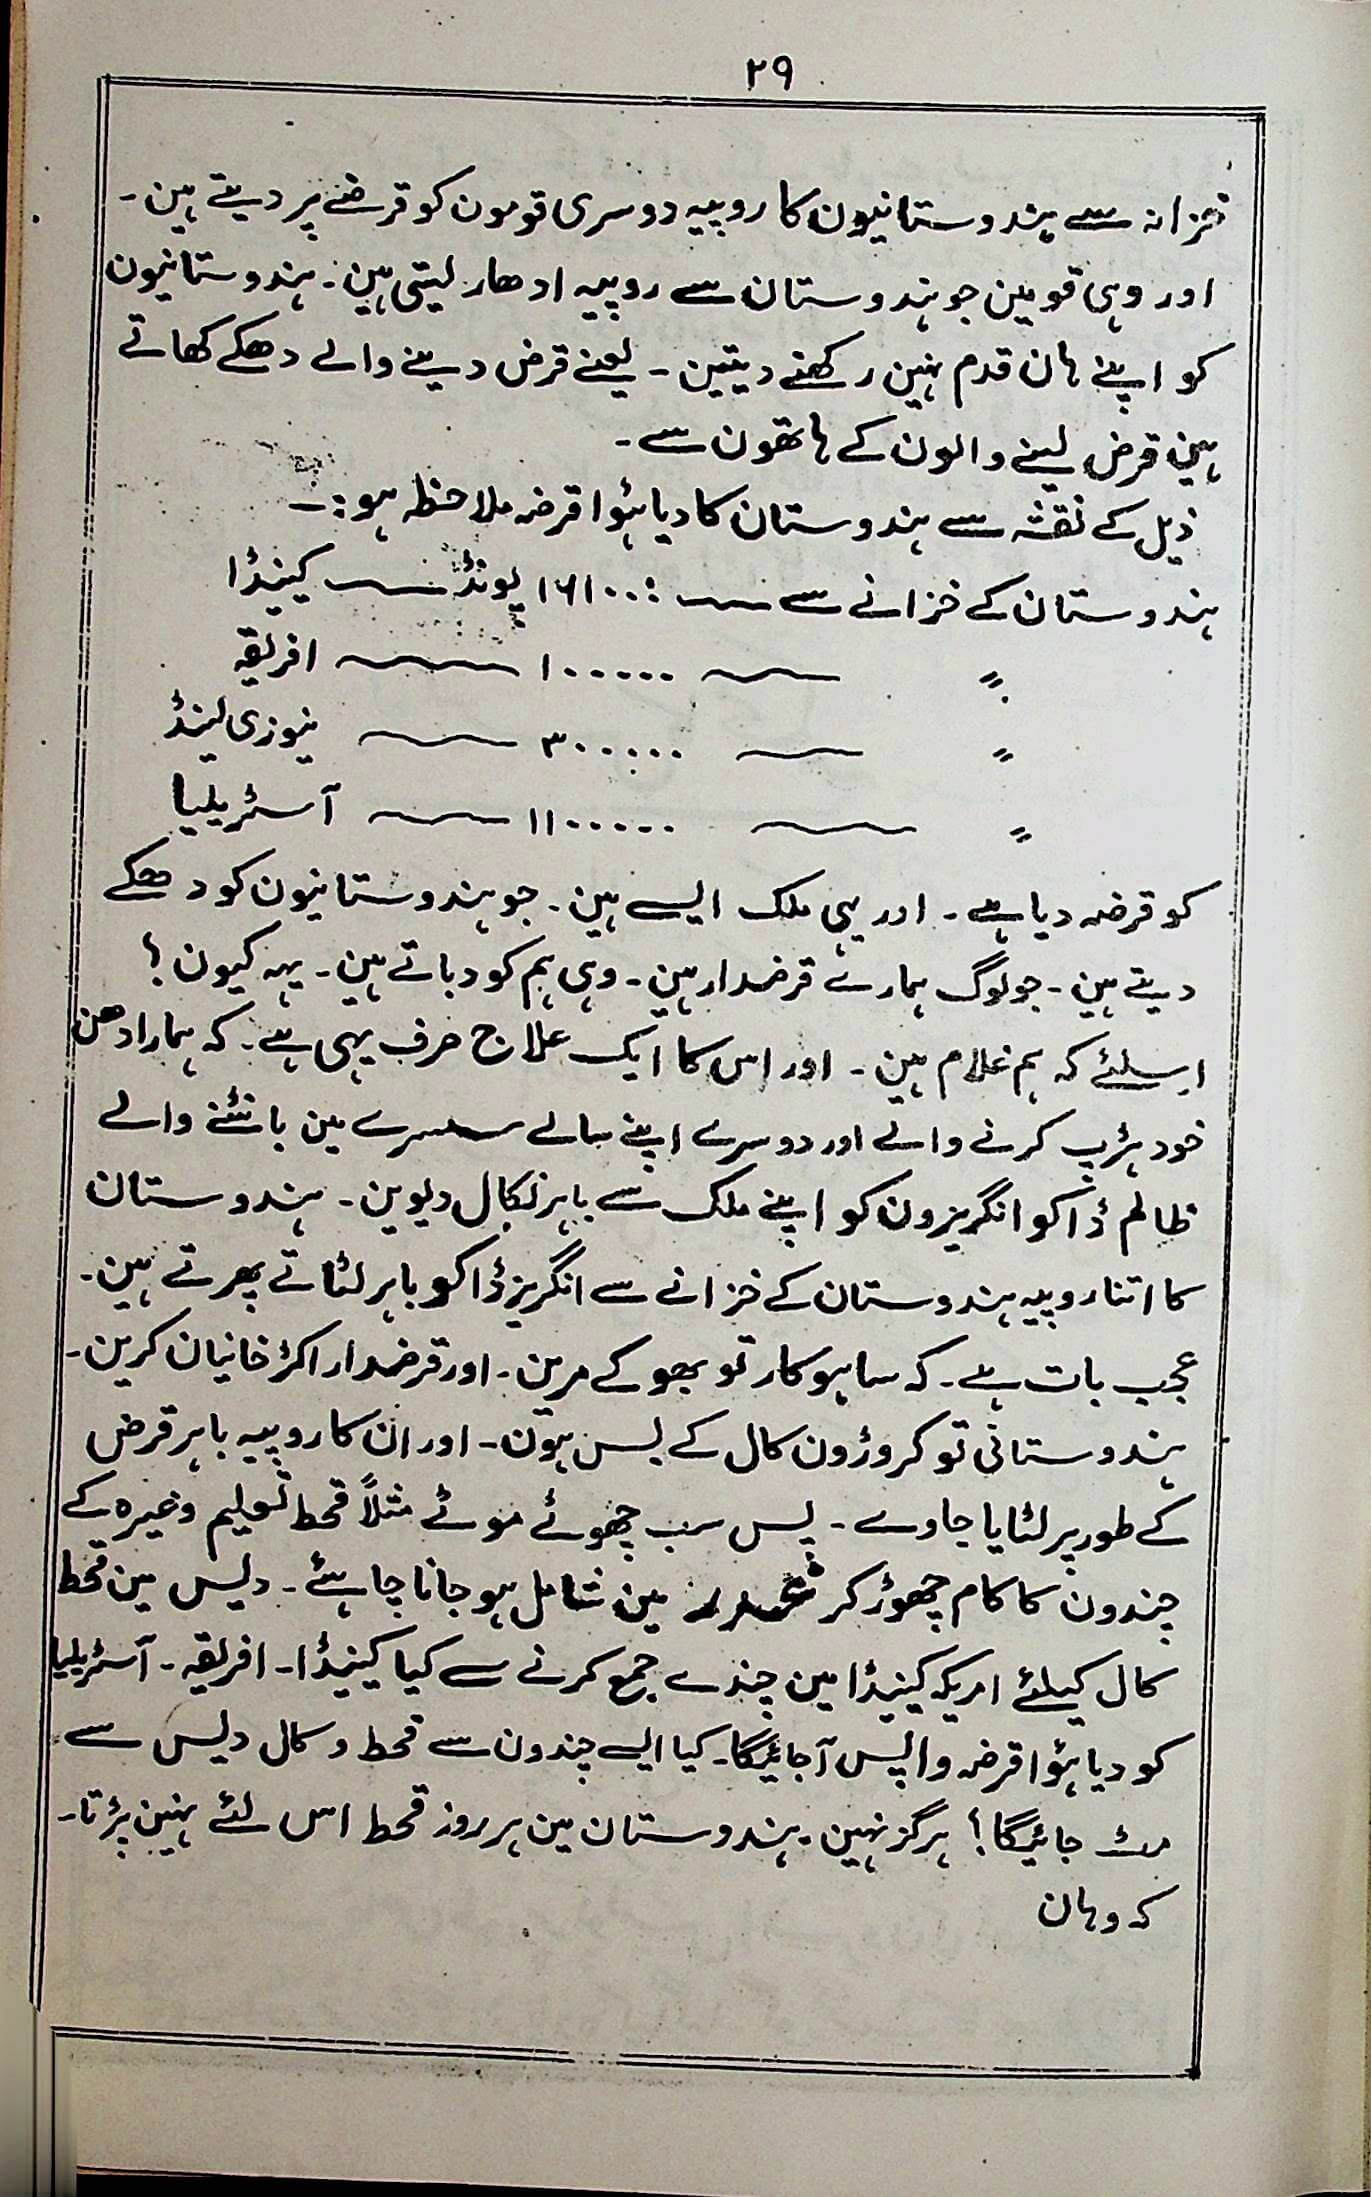 ۲۹
خزانہ سے ہندوستانیون کا روپیہ دوسری قومون کو قرضے پر دیتے ہین۔
اور وہی قومین جو ہندوستان سے روپیہ ادھار لیتی ہین۔ ہندوستانیون
کو اپنے ہان قدم نہین رکھنے دیتین۔ یعنے قرض دینے والے دھکے کھاتے
ہین قرض لینے والون کے ہاتھون سے۔
ذیل کے نقشہ سے ہندوستان کا دیا ہؤا قرضہ ملاحظہ ہو:۔
ہندوستان کے خزانے سے پونڈ کینیڈا
〃 ۱۰۰۰۰۰۰ افریقہ
〃 ۳۰۰۰۰۰ نیوزی لینڈ
〃 ۱۱۰۰۰۰۰ آسٹریلیا
کو قرضہ دیا ہے۔ اور یہی ملک ایسے ہین۔ جو ہندوستانیون کو دھکے
دیتے ہین۔ جو لوگ ہمارے قرضدار ہین۔ وہی ہم کو دباتے ہین۔ یہہ کیون؟
اسلئے کہ ہم غلام ہین۔ اور اس کا ایک علاج صرف یہی ہے۔ کہ ہمارا دھن
خود ہڑپ کرنے والے اور دوسرے اپنے سالے سسرے مین بانٹنے والے
ظالم ڈاکو انگریزون کو اپنے ملک سے باہر نکال دیوین۔ ہندوستان
کا اتنا روپیہ ہندوستان کے خزانے سے انگریز ڈاکو باہر لٹاتے پھرتے ہین۔
عجب بات ہے۔ کہ ساہوکار تو بھوکے مرین۔ اور قرضدار اکڑخانیان کرین۔
ہندوستانی تو کروڑون کال کے بس ہون۔ اور ان کا روپیہ باہر قرض
کے طور پر لٹایا جاوے۔ پس سب چھوٹے موٹے مثلاً قحط تعلیم وغیرہ کے
چندون کا کام چھوڑ کر غدر مین شامل ہو جانا چاہئے۔ دیس مین قحط
کال کیلئے امریکہ کینیڈا مین چندے جمع کرنے سے کیا کینیڈا۔ افریقہ۔ آسٹریلیا
کو دیا ہؤا قرضہ واپس آجائیگا۔ کیا ایسے چندون سے قحط و کال دیس سے
مٹ جائیگا؟ ہرگز نہین۔ ہندوستان مین ہر روز قحط اس لئے نہین پڑتا۔
کہ وہان